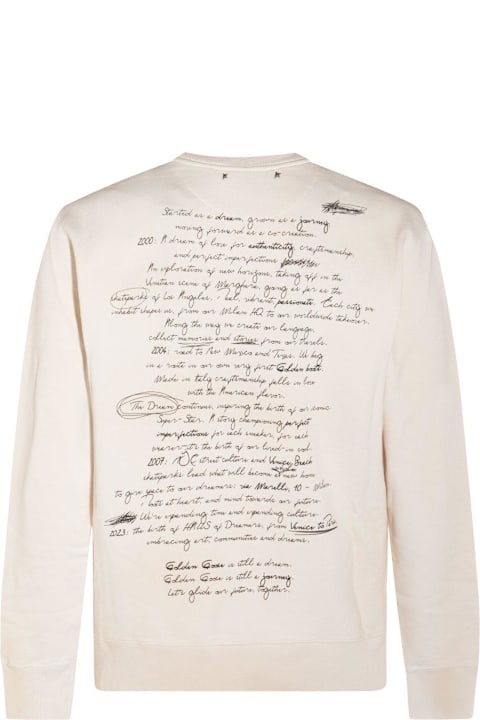 Started as a dream, grown as a journey
moving forward as a co-creation.
2000: A dream of love for authenticity, craftsmanship,
and perfect imperfections
An exploration of new horizons, taking off in the
Venetian scene of Marghera, going as far as the
skateparks of Los Angeles, real, vibrant, passionate. Each city we
inhabit shapes us, from our Milan HQ to our worldwide takeover.
Along the way we create our language,
collect memories and stories from our travels.
2004: road to New Mexico and Texas. We big
in a route in our own very first Golden boots.
Made in Italy craftsmanship falls in love
with the American flavor.
The Dream continues, inspiring the birth of our iconic
Super-Star. A story championing perfect
imperfections for each sneaker, for each
wearer: it's the birth of our lived-in
2007: street culture and Venice Beach
skateparks lead what will become a new home
to give space to our dreamers: via Marello, 10 -
boots at heart, and mind towards our future.
We're expanding time and expanding culture.
2023: the birth of HAUS of Dreamers, from Venice to
embracing art, communities and dreams.
Golden Goose is still a dream.
Golden Goose is still a journey.
Let's glide our future, together.